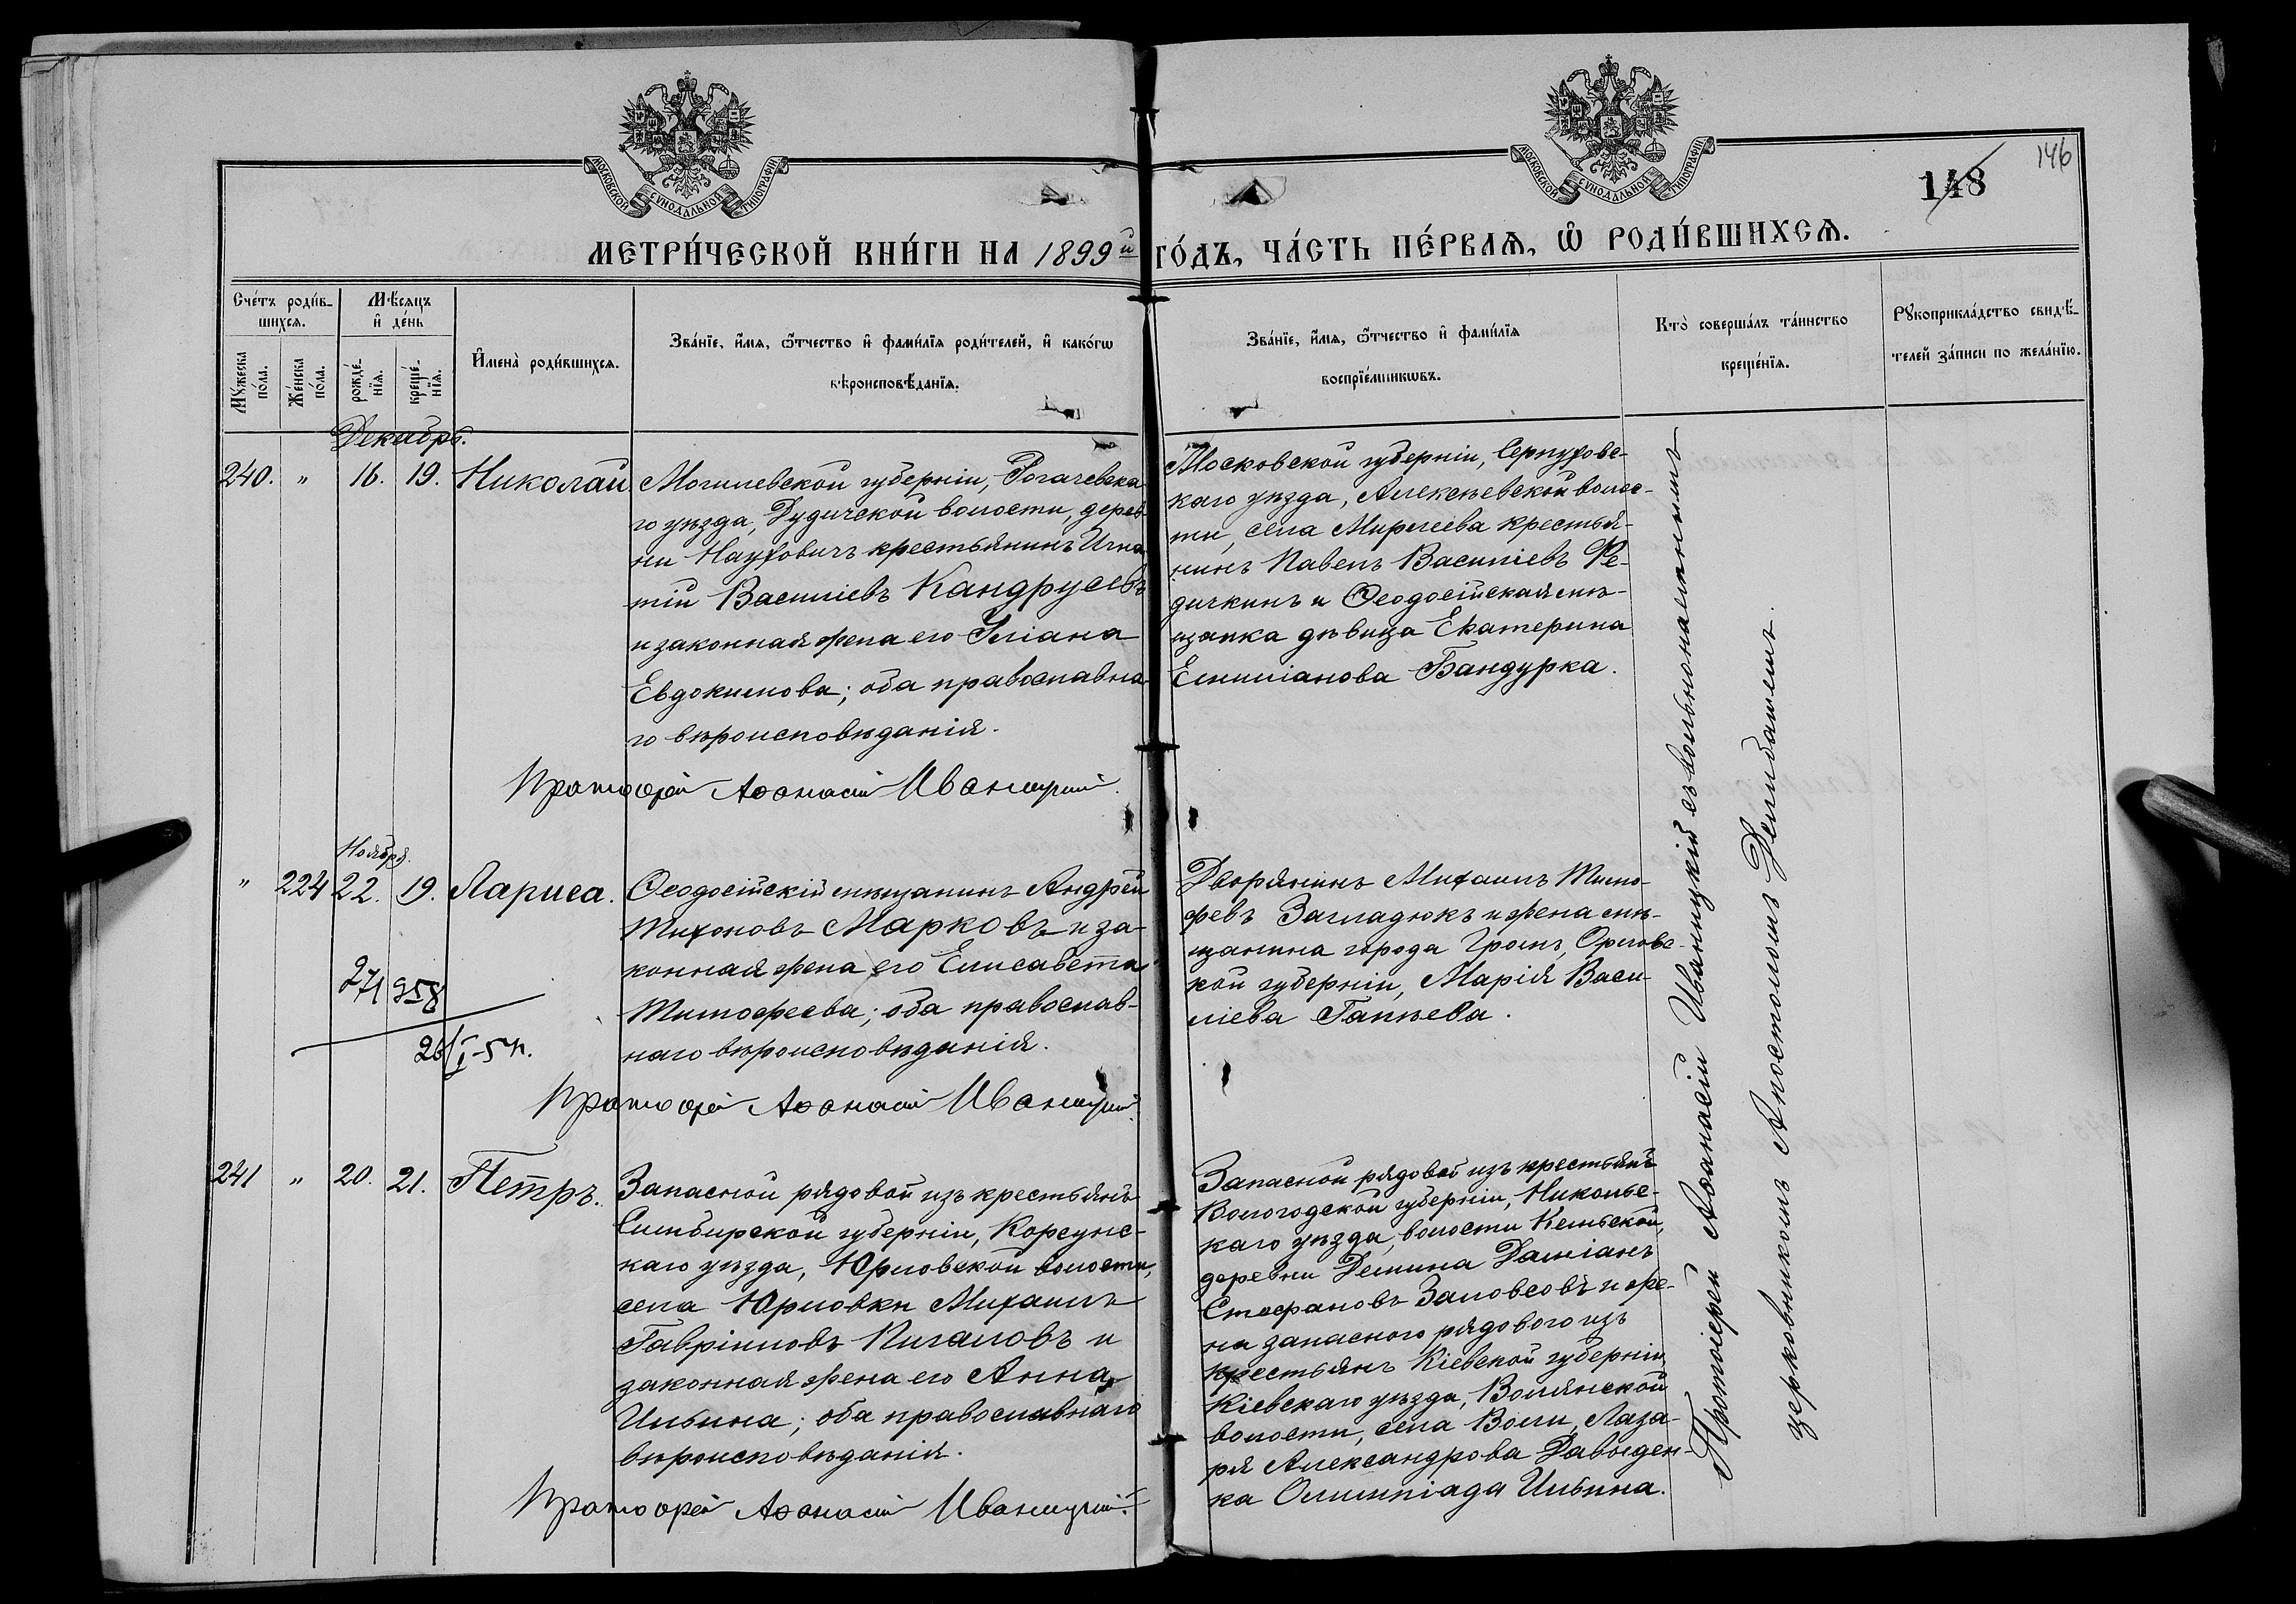 МОСКОВСКОЙ СУНОДАЛЬНОЙ ТИПОГРАФІИ
МОСКОВСКОЙ СУНОДАЛЬНОЙ ТИПОГРАФІИ
148
146
МЕТРИ́ЧЕСКОЙ КНИ́ГИ НА 1899й ГО́ДЪ, ЧА́СТЬ ПЕ́РВАѦ, Ѡ҆ РОДИ́ВШИХСѦ.
Сче́тъ роди́в-
шихсѧ.
Мѹ́жеска
по́ла.
Же́нска
по́ла.
Мѣ́сяцъ
и҆ де́нь
рожде́-
нїѧ.
креще́-
нїѧ.
И҆мена̀ роди́вшихсѧ.
Зва́нїе, и҆́мѧ, ѻ҆́тчество и҆ фами́лїѧ роди́телей, и҆ како́гѡ
вѣроисповѣ́данїѧ.
Зва́нїе, и҆́мѧ, ѻ҆́тчество и҆ фами́лїѧ
воспрїе́мникѡвъ.
Кто̀ соверша́лъ та́инство
креще́нїѧ.
Рѹкоприкла́дство свидѣ́-
телей за́писи по жела́нїю.
Декабрь.
240. " 16. 19. Николай
Могилевской губерніи, Рогачевска
го уѣзда, Дудичской волости, дерев-
ни Наухович крестьянинъ Игна
тій Василіевъ Кандрусевъ
и законная жена его Уліана
Евдокимова; оба православна-
го вѣроисповѣданія.
Протоіерей Аѳанасій Иваницкій.
Московской губерніи, Серпуховс-
каго уѣзда, Алексѣевской волос-
ти, села крестья-
нинъ Павелъ Василіевъ Ре-
дичкинъ и Ѳеодосійская мѣ-
щанка дѣвица Екатерина
Емиліанова Бандурка.
Ноября.
" 224 22. 19. Лариса.
Ѳеодосійскій мѣщанинъ Андрей
Тихоновъ Марковъ и за-
конная жена его Елисавета
Тимофеева; оба православ-
наго вѣроисповѣданія.
Протоіерей Аѳанасій Иваницкій.
271 958
26/I-57г.
Дворянинъ Михаилъ Тимо-
феевъ Загладюкъ и жена мѣ-
щанина города Орловс-
кой губерніи, Марія Васи-
ліева Гапѣева.
241 " 20. 21. Петръ.
Запасной рядовой изъ крестьянъ
Симбирской губерніи, Корсунс-
каго уѣзда, Юрловской волости,
села Юрловки Михаилъ
Гавріиловъ Пигаловъ и
законная жена его Анна
Ильина; оба православнаго
вѣроисповѣданія.
Протоіерей Аѳанасій Иваницкій.
Запасной рядовой изъ крестьянъ
Вологодской губерніи, Никольс-
каго уѣзда, волости Кемьской,
деревни Демина Даміанъ
Стефановъ и же-
на запаснаго рядового изъ
крестьянъ Кіевской губерніи
Кіевскаго уѣзда,
волости, села Лаза-
ря Александрова Давыден-
ка Олимпіада Ильина.
Протоіерей Аѳанасій Иваницкій съ вольнонаемнымъ
церковникомъ Апостоломъ Делибашемъ.